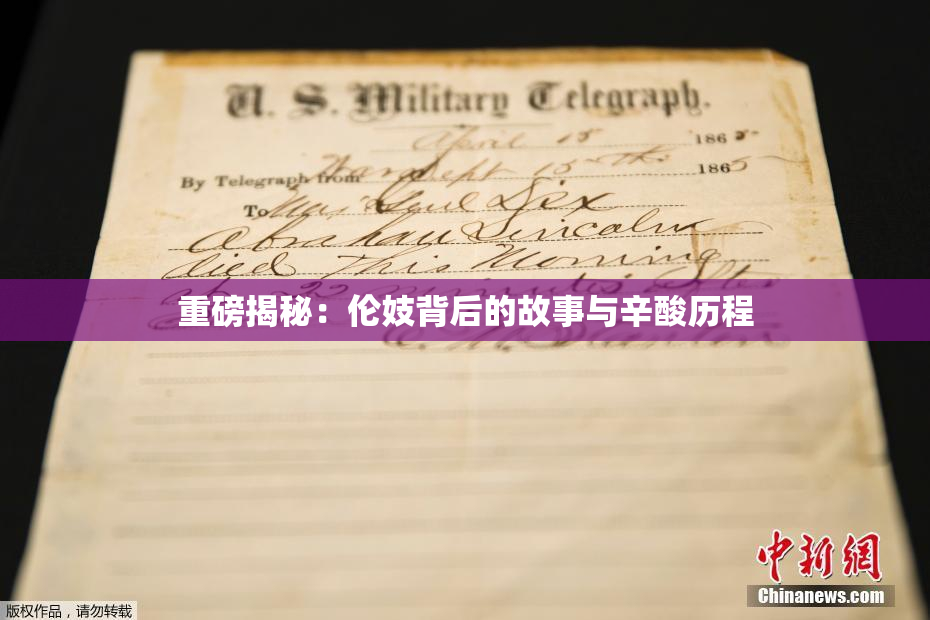 U. S. Military Telegraph.
April 15 1865
By Telegraph from War Dept 15th 1865
To Maj Genl Dix
Abraham Lincoln
died This Morning
22 minutes after
重磅揭秘：伦妓背后的故事与辛酸历程
中新网
Chinanews.com
版权作品，请勿转载